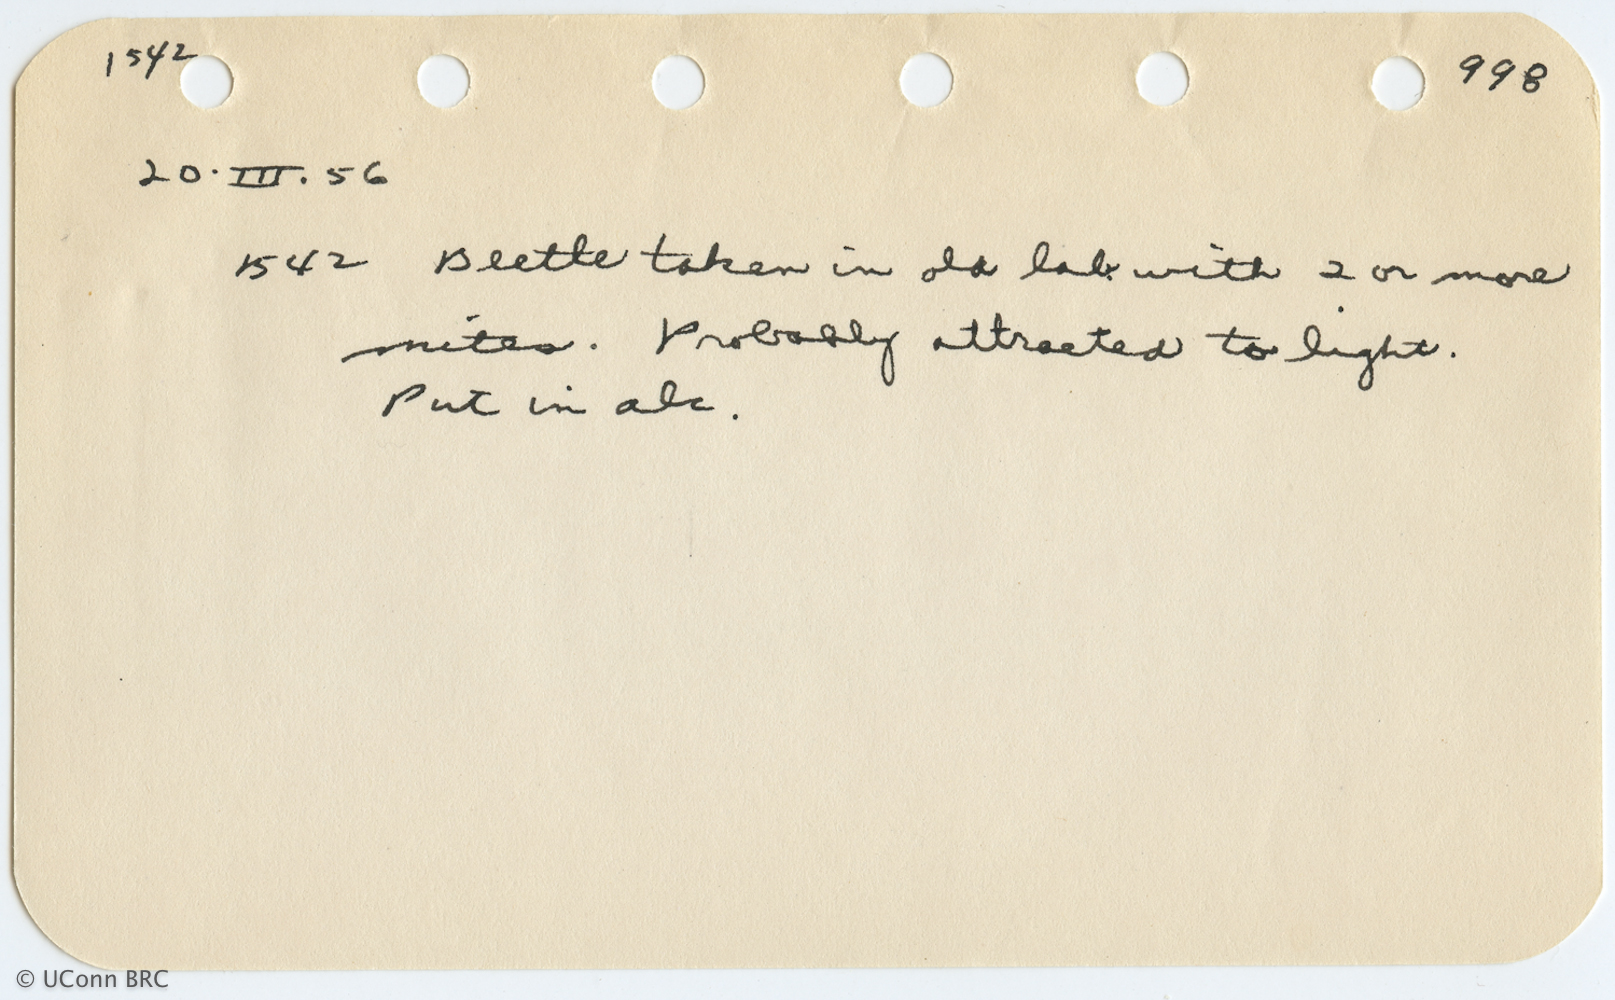 1542 998
20.III.56
1542 Beetle taken in old lab. with 2 or more
mites. Probably attracted to light.
Put in alc.
© UConn BRC